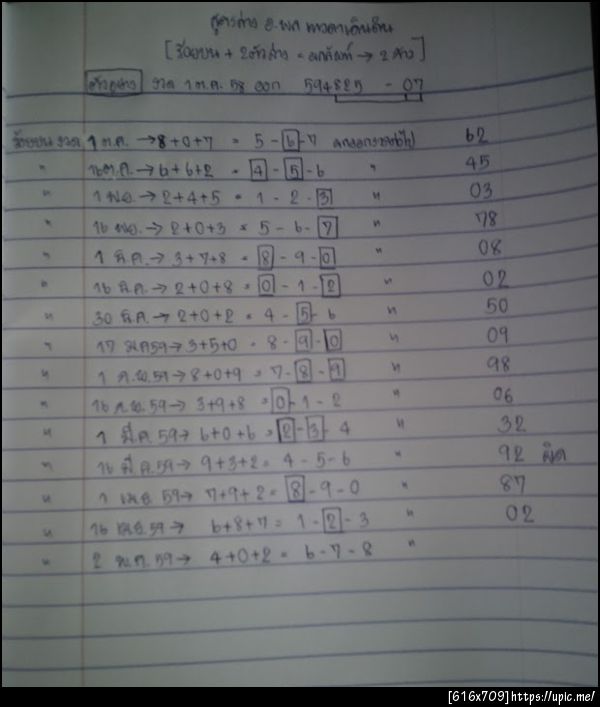 สูตรล่าง อ.พล ดาวดาเดินดิน
[ร้อยบน + 2ตัวล่าง = ผลลัพท์ → 2 ล่าง]
ตัวอย่าง งวด 1 ต.ค. 58 ออก 594825 - 07
ร้อยบน งวด 1 ต.ค. → 8+0+7 = 5 - 6 - 7 62
" 16 ต.ค. → 6+6+2 = 4 - 5 - 6 " 45
" 1 พ.ย. → 2+4+5 = 1 - 2 - 3 " 03
" 16 พ.ย. → 2+0+3 = 5 - 6 - 7 " 78
" 1 ธ.ค. → 3+7+8 = 8 - 9 - 0 " 08
" 16 ธ.ค. → 2+0+8 = 0 - 1 - 2 " 02
" 30 ธ.ค. → 2+0+2 = 4 - 5 - 6 " 50
" 17 ม.ค 59 → 3+5+0 = 8 - 9 - 0 " 09
" 1 ก.พ. 59 → 8+0+9 = 7 - 8 - 9 " 98
" 16 ก.พ. 59 → 3+9+8 = 0 - 1 - 2 " 06
" 1 มี.ค. 59 → 6+0+6 = 2 - 3 - 4 " 32
" 16 มี.ค. 59 → 9+3+2 = 4 - 5 - 6 " 92 ผิด
" 1 เม.ย. 59 → 7+9+2 = 8 - 9 - 0 " 87
" 16 เม.ย. 59 → 6+8+7 = 1 - 2 - 3 " 02
" 2 พ.ค. 59 → 4+0+2 = 6 - 7 - 8 "
[616x709]https://upic.me/